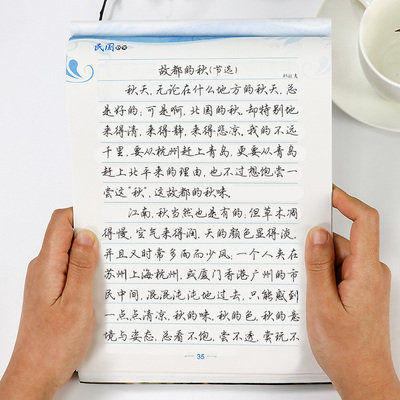 民国
故都的秋(节选)
郁达夫
秋天,无论在什么地方的秋天,总
是好的;可是啊,北国的秋,却特别地
来得清,来得静,来得悲凉。我的不远
千里,要从杭州赶上青岛,更要从青岛
赶上北平来的理由,也不过想饱尝一
尝这“秋”,这故都的秋味。
江南,秋当然也是有的;但草木凋
得慢,空气来得润,天的颜色显得淡,
并且又时常多雨而少风;一个人夹在
苏州上海杭州,或厦门香港广州的市
民中间,混混沌沌地过去,只能感到
一点点清凉,秋的味,秋的色,秋的意
境与姿态,总看不饱,尝不透,赏玩不
35